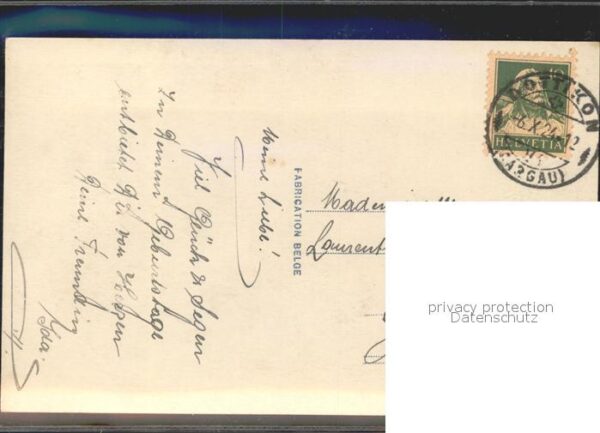 Meine Liebe!
Viel Glück & Segen
In Deinem Geburtstage
entbietet Dir von Herzen
Deine Freundin
Ida.
FABRICATION BELGE
Laurent
HELVETIA
(AARGAU)
privacy protection
Datenschutz